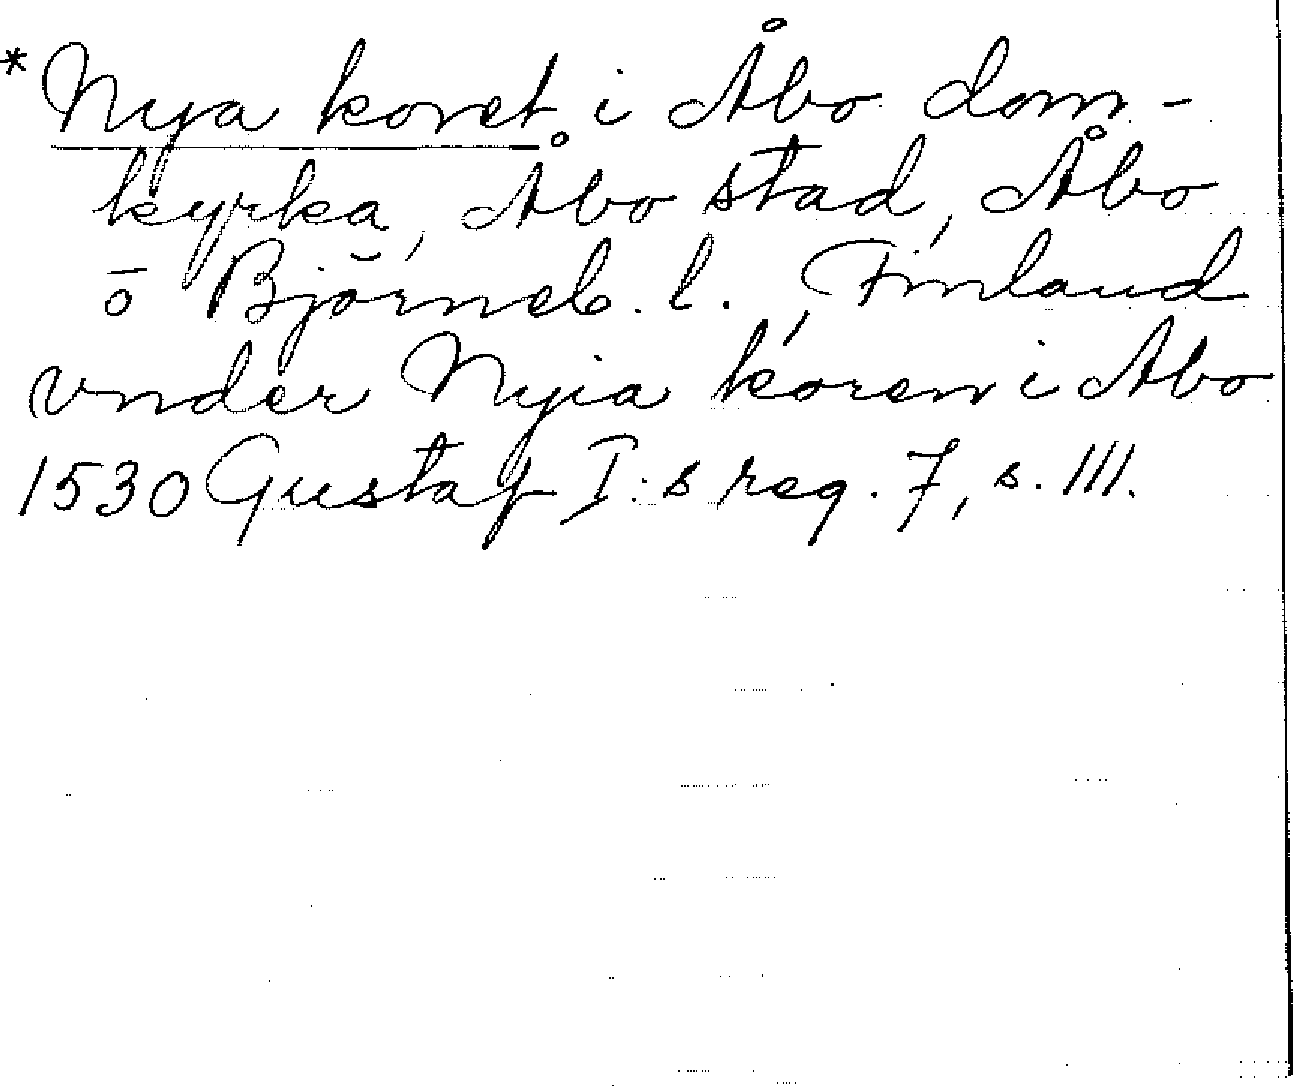 *Nya koret i Åbo dom-
kyrka, Åbo stad, Åbo
o Björneb. l., Finland
vnder Nyia koren i Abo
1530 Gustaf I:s reg. 7, s. 111.